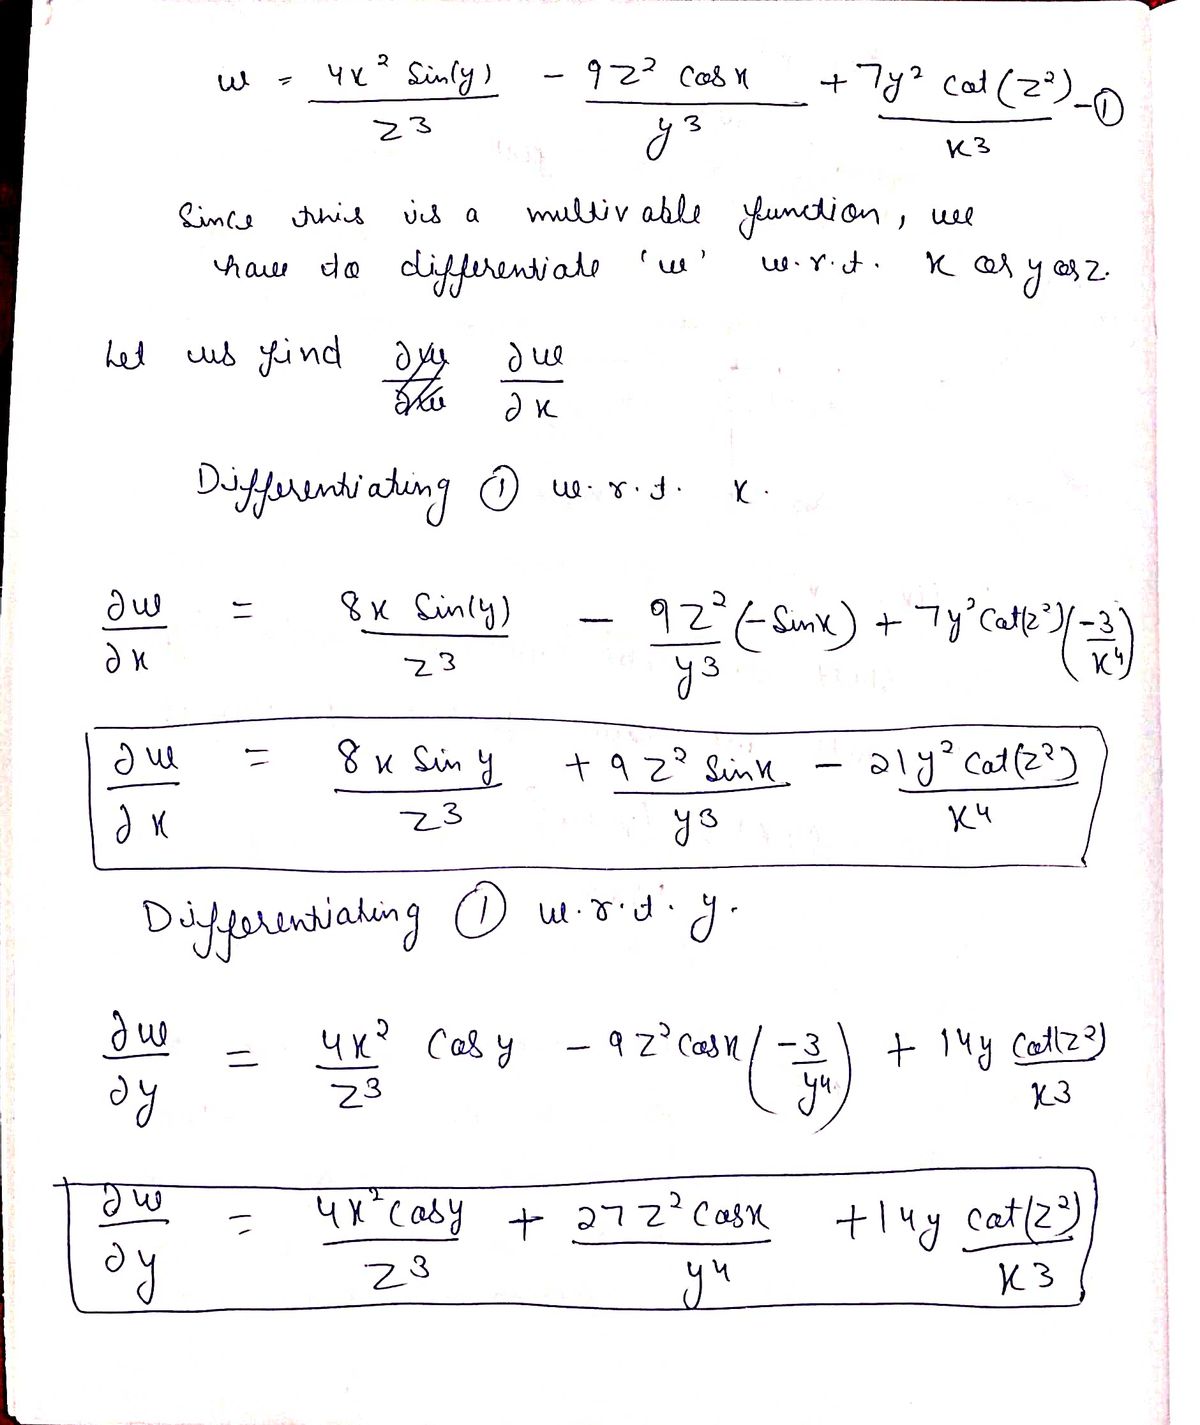 w = 4x² Sin(y)/z3 - 9z² cosx/y3 + 7y² cot(z²)/x3 - ①
Since this is a multivable function, we
have to differentiate 'w' w.r.t. x or y or z.
Let us find ∂w/∂x
Differentiating ① w.r.t. x.
∂w/∂x = 8x Sin(y)/z3 - 9z²/y3 (-Sinx) + 7y² Cot(z²)(-3/x4)
∂w/∂x = 8x Sin y/z3 + 9z² Sinx/y3 - 21y² Cot(z²)/x4
Differentiating ① w.r.t. y.
∂w/∂y = 4x²/z3 Cos y - 9z² Cosx(-3/y4) + 14y Cot(z²)/x3
∂w/∂y = 4x² Cosy/z3 + 27z² Cosx/y4 + 14y Cot(z²)/x3